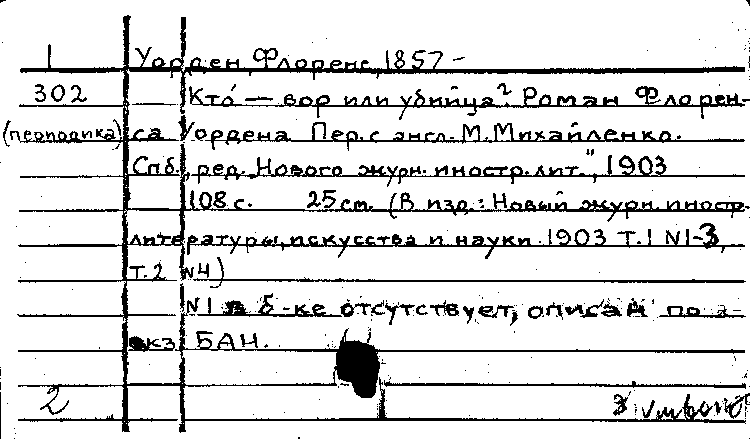 1 Уорден, Флоренс, 1857 -
302 Кто́ — вор или убийца? Роман Флорен-
(периодика) са Уордена Пер. с англ. М. Михайленко.
Спб., ред. „Нового журн. иностр. лит.", 1903
108 с. 25 см. (В изд.: Новый журн. иностр.
литературы, искусства и науки 1903 Т.1 N1-3,
Т.2 N4)
N1 в б-ке отсутствует, описан по э-
кз. БАН.
2